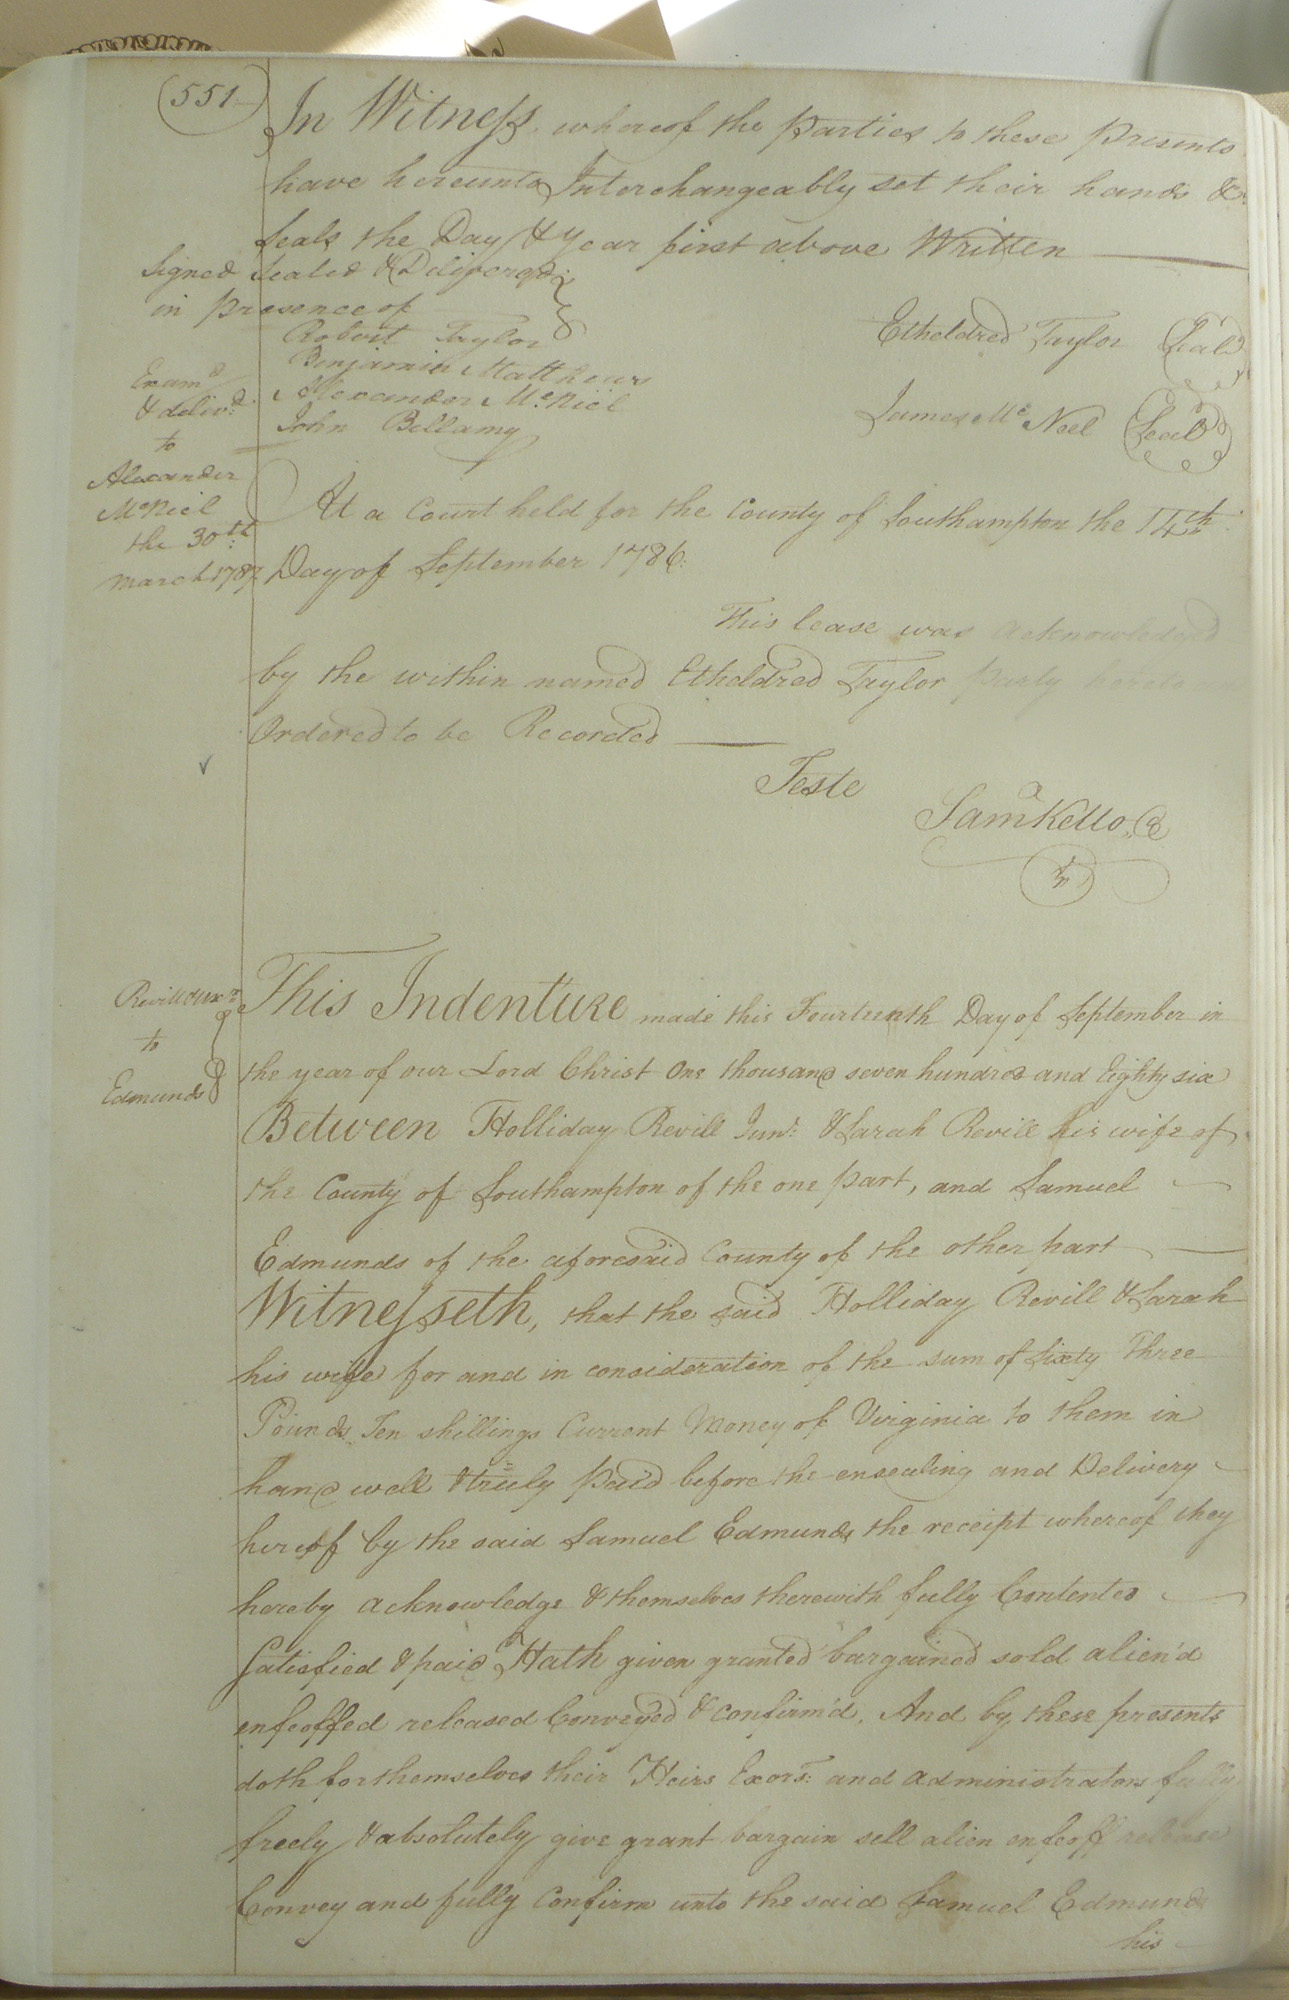 (551)
In Witness whereof the Parties to these Presents
have hereunto Interchangeably set their hands &
Seals the Day & Year first above Written
Signed Sealed & Delivered
in presence of
Robert Taylor
Benjamin Matthews
Alexander Mc.Niel
John Bellamy
Etheldred Taylor (Seal)
James Mc Neel (Seal)
Exam.d
& deliv.d
to
Alexander
McNiel
the 30th
March 1787
At a Court held for the County of Southampton the 14th
Day of September 1786
This lease was acknowledged
by the within named Etheldred Taylor Party hereto
Ordered to be Recorded
Teste
Sam Kello
Revill & Ux.r
to
Edmunds
This Indenture made this Fourteenth Day of September in
the year of our Lord Christ One thousand seven hundred and Eighty six
Between Holliday Revill Jun.r & Sarah Revill his wife of
the County of Southampton of the one part, and Samuel
Edmunds of the aforesaid County of the other part
Witnesseth, that the said Holliday Revill & Sarah
his wife for and in consideration of the sum of Sixty Three
Pounds Ten shillings Current Money of Virginia to them in
hand well & truely Paid before the ensealing and Delivery
hereof by the said Samuel Edmunds the receipt whereof they
hereby acknowledge & themselves therewith fully Contented
Satisfied & paid Hath given granted bargained sold alien'd
enfeoffed released Conveyed & confirm'd. And by these presents
doth for themselves their Heirs Exors: and administrators fully
freely & absolutely give grant bargain sell alien enfeoff release
Convey and fully Confirm unto the said Samuel Edmunds
his